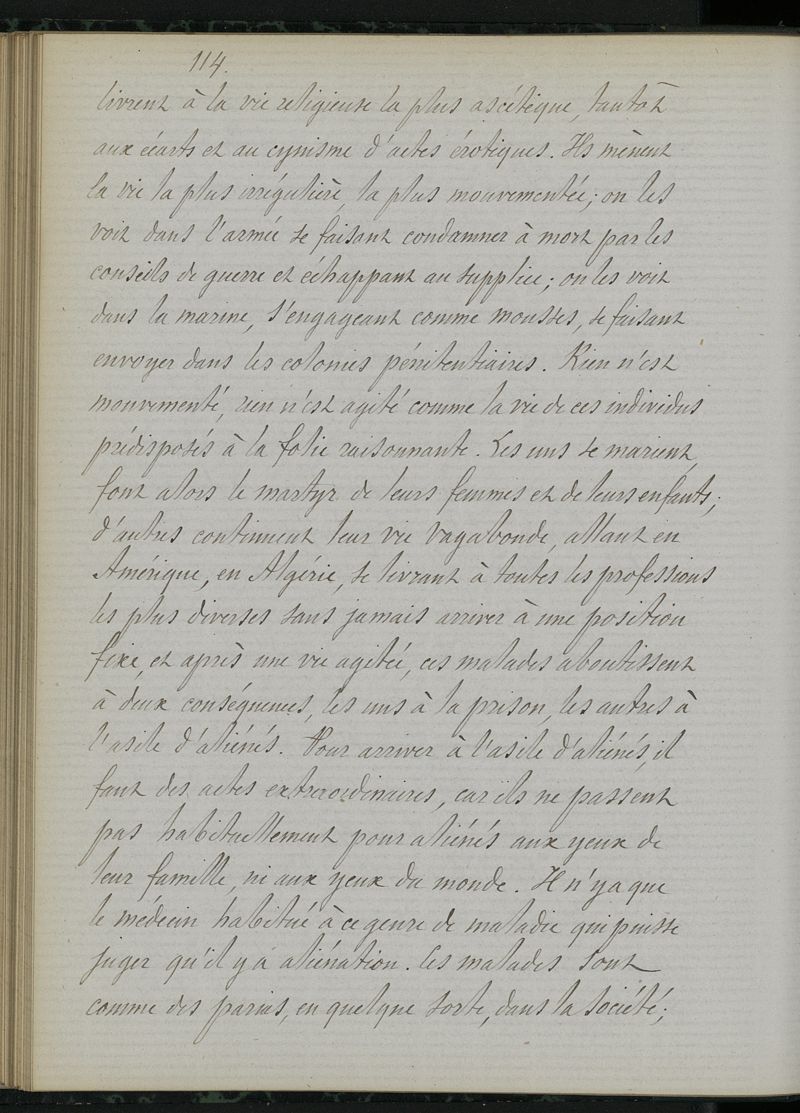 114.
livrent à la vie religieuse la plus ascétique, tantôt
aux écarts et au cynisme d'actes érotiques. Ils mènent
la vie la plus irrégulière, la plus mouvementée; on les
voit dans l'armée se faisant condamner à mort par les
conseils de guerre et échappant au supplice; on les voit
dans la marine, s'engageant comme mousses, se faisant
envoyer dans les colonies pénitentiaires. Rien n'est
mouvementé, rien n'est agité comme la vie de ces individus
prédisposés à la folie raisonnante. Les uns se marient,
font alors le martyr de leurs femmes et de leurs enfants;
d'autres continuent leur vie vagabonde, allant en
Amérique, en Algérie, se livrant à toutes les professions
les plus diverses sans jamais arriver à une position
fixe, et après une vie agitée, ces malades aboutissent
à deux conséquences, les uns à la prison, les autres à
l'asile d'aliénés. Pour arriver à l'asile d'aliénés, il
faut des actes extraordinaires, car ils ne passent
pas habituellement pour aliénés aux yeux de
leur famille, ni aux yeux du monde. Il n'y a que
le médecin habitué à ce genre de maladie qui puisse
juger qu'il y a aliénation. Ces malades sont
comme des parias, en quelque sorte, dans la société;